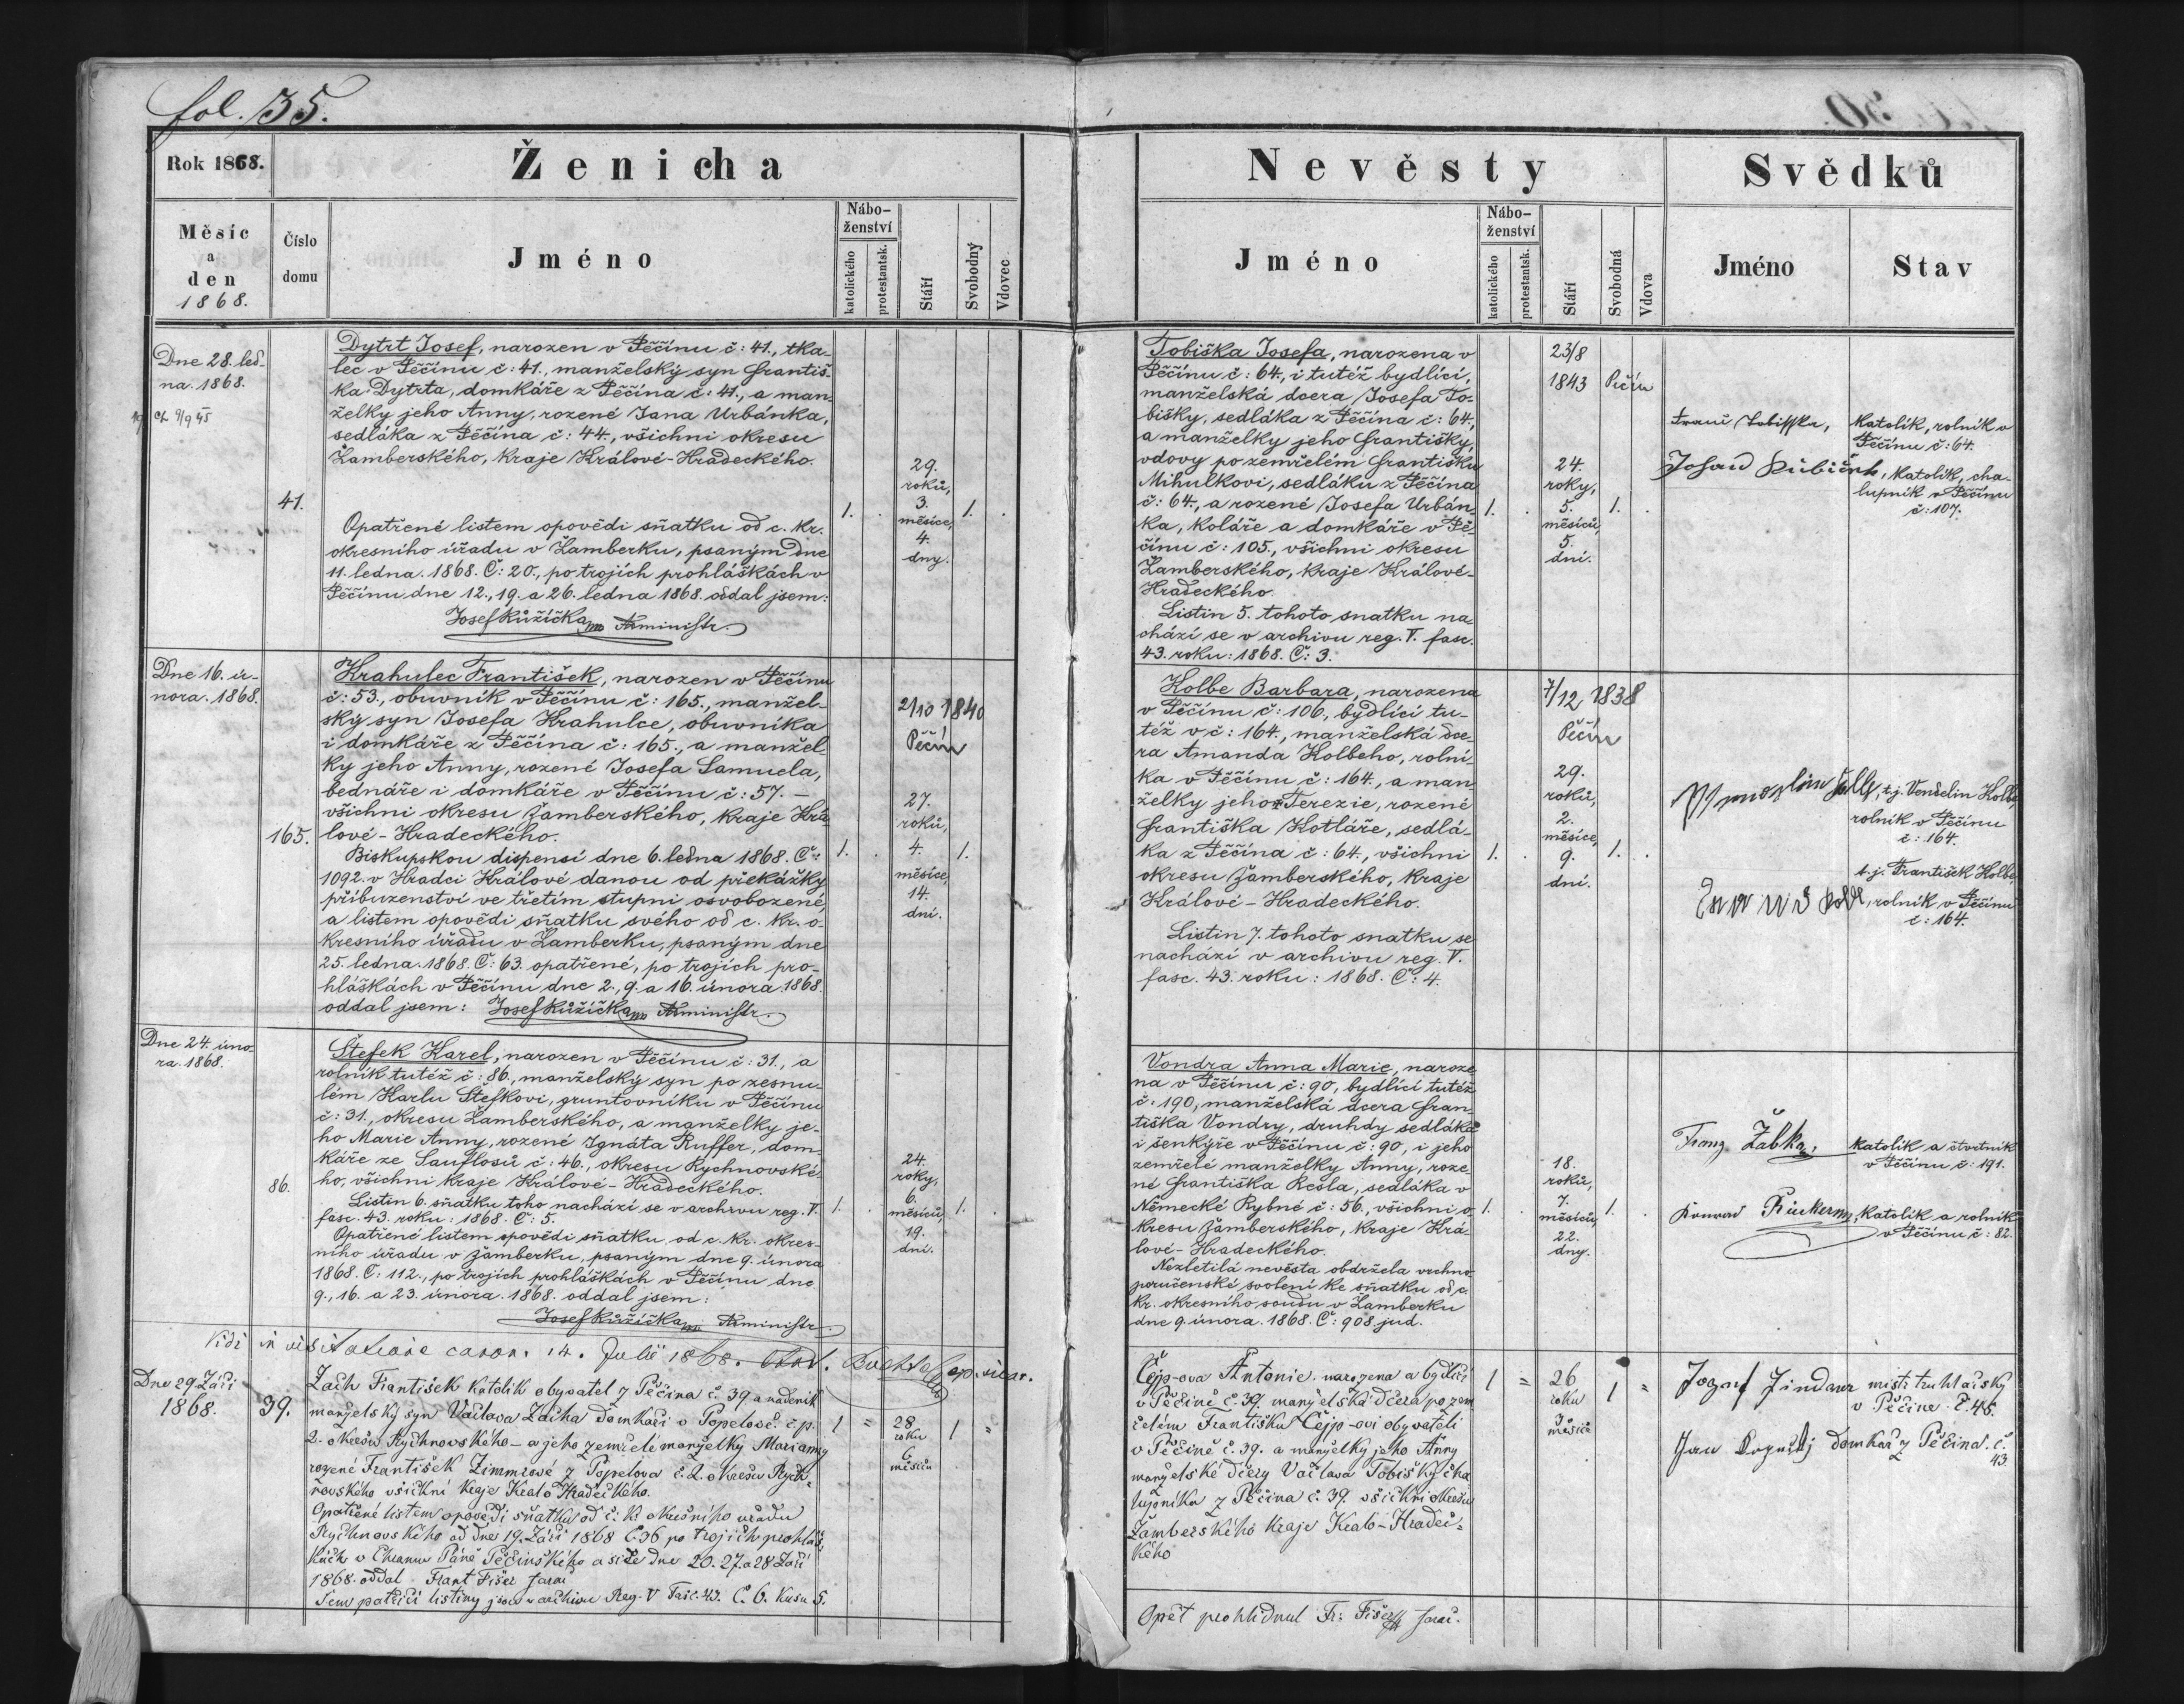 fol. 35.
Rok 1868.
Ženicha
Nevěsty
Svědků
Měsíc
a
den
1868.
Číslo
domu
Jméno
Nábo-
ženství
katolického
protestantsk.
Stáří
Svobodný
Vdovec
Jméno
Nábo-
ženství
katolického
protestantsk.
Stáří
Svobodná
Vdova
Jméno
Stav
Dne 28. led-
na. 1868.
9/9 45
41.
Dytrt Josef, narozen v Pěčínu č: 41., tka-
lec v Pěčínu č: 41., manželský syn Františ-
ka Dytrta, domkáře z Pěčína č: 41., a man-
želky jeho Anny, rozené Jana Urbánka,
sedláka z Pěčína č: 44., všichni okresu
Žamberského, kraje Králové-Hradeckého.
Opatřené listem opovědi sňatku od c. kr.
okresního úřadu v Žamberku, psaným dne
11. ledna. 1868. Č: 20., po trojích prohláškách v
Pěčínu dne 12., 19. a 26. ledna 1868. oddal jsem:
Josef Růžička mp Administr.
1.
29.
roků,
3.
měsíce,
4.
dny.
1.
Tobiška Josefa, narozena v
Pěčínu č: 64., i tutéž bydlící,
manželská dcera Josefa To-
bišky, sedláka z Pěčína č: 64,
a manželky jeho Františky,
vdovy po zemřelém Františku
Mihulkovi, sedláku z Pěčína
č: 64., a rozené Josefa Urbán-
ka, koláře a domkáře v Pě-
čínu č: 105., všichni okresu
Žamberského, kraje Králové-
Hradeckého.
Listin 5. tohoto snatku na-
chází se v archivu reg. V. fasc.
43. roku: 1868. Č: 3.
1.
23/8
1843 Pečín
24.
roky,
5.
měsíců,
5.
dní.
1.
Katolík, rolník v
Pěčínu č: 64.
Katolík, cha-
lupník v Pěčínu
č: 107.
Dne 16. ú-
nora. 1868.
165.
Krahulec František, narozen v Pěčínu
č: 53., obuvník v Pěčínu č: 165., manžel-
ský syn Josefa Krahulce, obuvníka
i domkáře z Pěčína č: 165., a manžel-
ky jeho Anny, rozené Josefa Samuela,
bednáře i domkáře v Pěčínu č: 57. –
všichni okresu Žamberského, kraje Krá-
lové-Hradeckého.
Biskupskou dispensí dne 6. ledna 1868. Č:
1092. v Hradci Králové danou od překážky
příbuzenství ve třetím stupni osvobozené,
a listem opovědi sňatku svého od c. kr. o-
kresního úřadu v Žamberku, psaným dne
25. ledna. 1868. Č: 63. opatřené, po trojích pro-
hláškách v Pěčínu dne 2., 9. a 16. února. 1868.
oddal jsem: Josef Růžička mp Administr.
1.
2/10 1840
Pěčín
27.
roků,
4.
měsíce,
14.
dní.
1.
Kolbe Barbara, narozena
v Pěčínu č: 106., bydlící tu-
též v č: 164., manželská dce-
ra Amanda Kolbeho, rolní-
ka v Pěčínu č: 164., a man-
želky jeho Terezie, rozené
Františka Kotláře, sedlá-
ka z Pěčína č: 64., všichni
okresu Žamberského, kraje
Králové-Hradeckého.
Listin 7. tohoto snatku se
nachází v archivu reg. V.
fasc. 43. roku: 1868. Č: 4.
1.
7/12 1838
Pěčín
29.
roků,
2.
měsíce,
9.
dní.
1.
t.j. Vendelin Kolbe,
rolník v Pěčínu
č: 164.
t.j. František Kolbe,
rolník v Pěčínu
č: 164.
Dne 24. úno-
ra. 1868.
86.
Štefek Karel, narozen v Pěčínu č: 31., a
rolník tutéž č: 86., manželský syn po zesnu-
lém Karlu Štefkovi, gruntovníku v Pěčínu
č: 31., okresu Žamberského, a manželky je-
ho Marie Anny, rozené Ignáta Ruffer, dom-
káře ze Sauflosů č: 46., okresu Rychnovské-
ho, všichni kraje Králové-Hradeckého.
Listin 6. sňatku toho nachází se v archivu reg. V.
fasc. 43. roku: 1868. Č: 5.
Opatřené listem opovědi sňatku od c. kr. okres-
ního úřadu v Žamberku, psaným dne 9. února
1868. Č: 112., po trojích prohláškách v Pěčínu dne
9., 16. a 23. února. 1868. oddal jsem:
Josef Růžička mp Administr.
1.
24.
roky,
6.
měsíců,
19.
dní.
1.
Vondra Anna Marie, naroze-
na v Pěčínu č: 90, bydlící tutéž
č: 190, manželská dcera Fran-
tiška Vondry, druhdy sedláka
i šenkýře v Pěčínu č: 90, i jeho
zemřelé manželky Anny, roze-
né Františka Resla, sedláka v
Německé Rybné č: 56., všichni o-
kresu Žamberského, kraje Krá-
lové-Hradeckého.
Nezletilá nevěsta obdržela vrchno-
poručenské svolení ke sňatku od c.
kr. okresního soudu v Žamberku
dne 9. února. 1868. Č: 908. jud.
1.
18.
roků,
7.
měsíců,
22.
dny.
1.
Žabka, katolík a čtvrtník
v Pěčínu č: 191.
katolík a rolník
v Pěčínu č: 82.
Vidi in visitatione canon. 14. Julii 1868.
Dne 29 Záři
1868.
39.
Zach František katolik obyvatel z Pěčina č. 39 a nádeník
manželský syn Václava Zacha domkaři v Popelově č.p.
2. okresu Rychnovského – a jeho zemřelé manželky Marianny
rozené František Zimmrové z Popelova č. 2. okresu Rych-
novského všickni kraje Kralo Hradeckého.
Opatřené listem opovědi sňatku od c. k. okresního uřadu
Rychnovského od dne 19. Záři 1868 Č 36 po trojich prohláš-
kách v Chramu Páně Pěčinského a sice dne 20. 27. a 28 Záři
1868. oddal Frant Fišer farář
Sem patřící listiny jsou v archivu Reg. V Fasc. 43. Č. 6. Kusu 5.
1
28
roku
6
měsiců
1
Čejp-ova Antonie narozena a bydlící
v Pěčině č. 39. manželská dcera po zem-
řelém Františku Čejp-ovi obyvateli
v Pěčině č. 39. a manželky jeho Anny
manželské dcery Václava Tobišky cha-
lupníka z Pěčina č. 39. všickni okresu
Žamberského kraje Kralo-Hradec-
kého
Opět prohlídnul Fr: Fišer farář.
1
26
roku
3
měsíce
1
Jozef Jindra mistr truhlařský
v Pěčine č. 45.
Jan domkař z Pěčina č.
43.